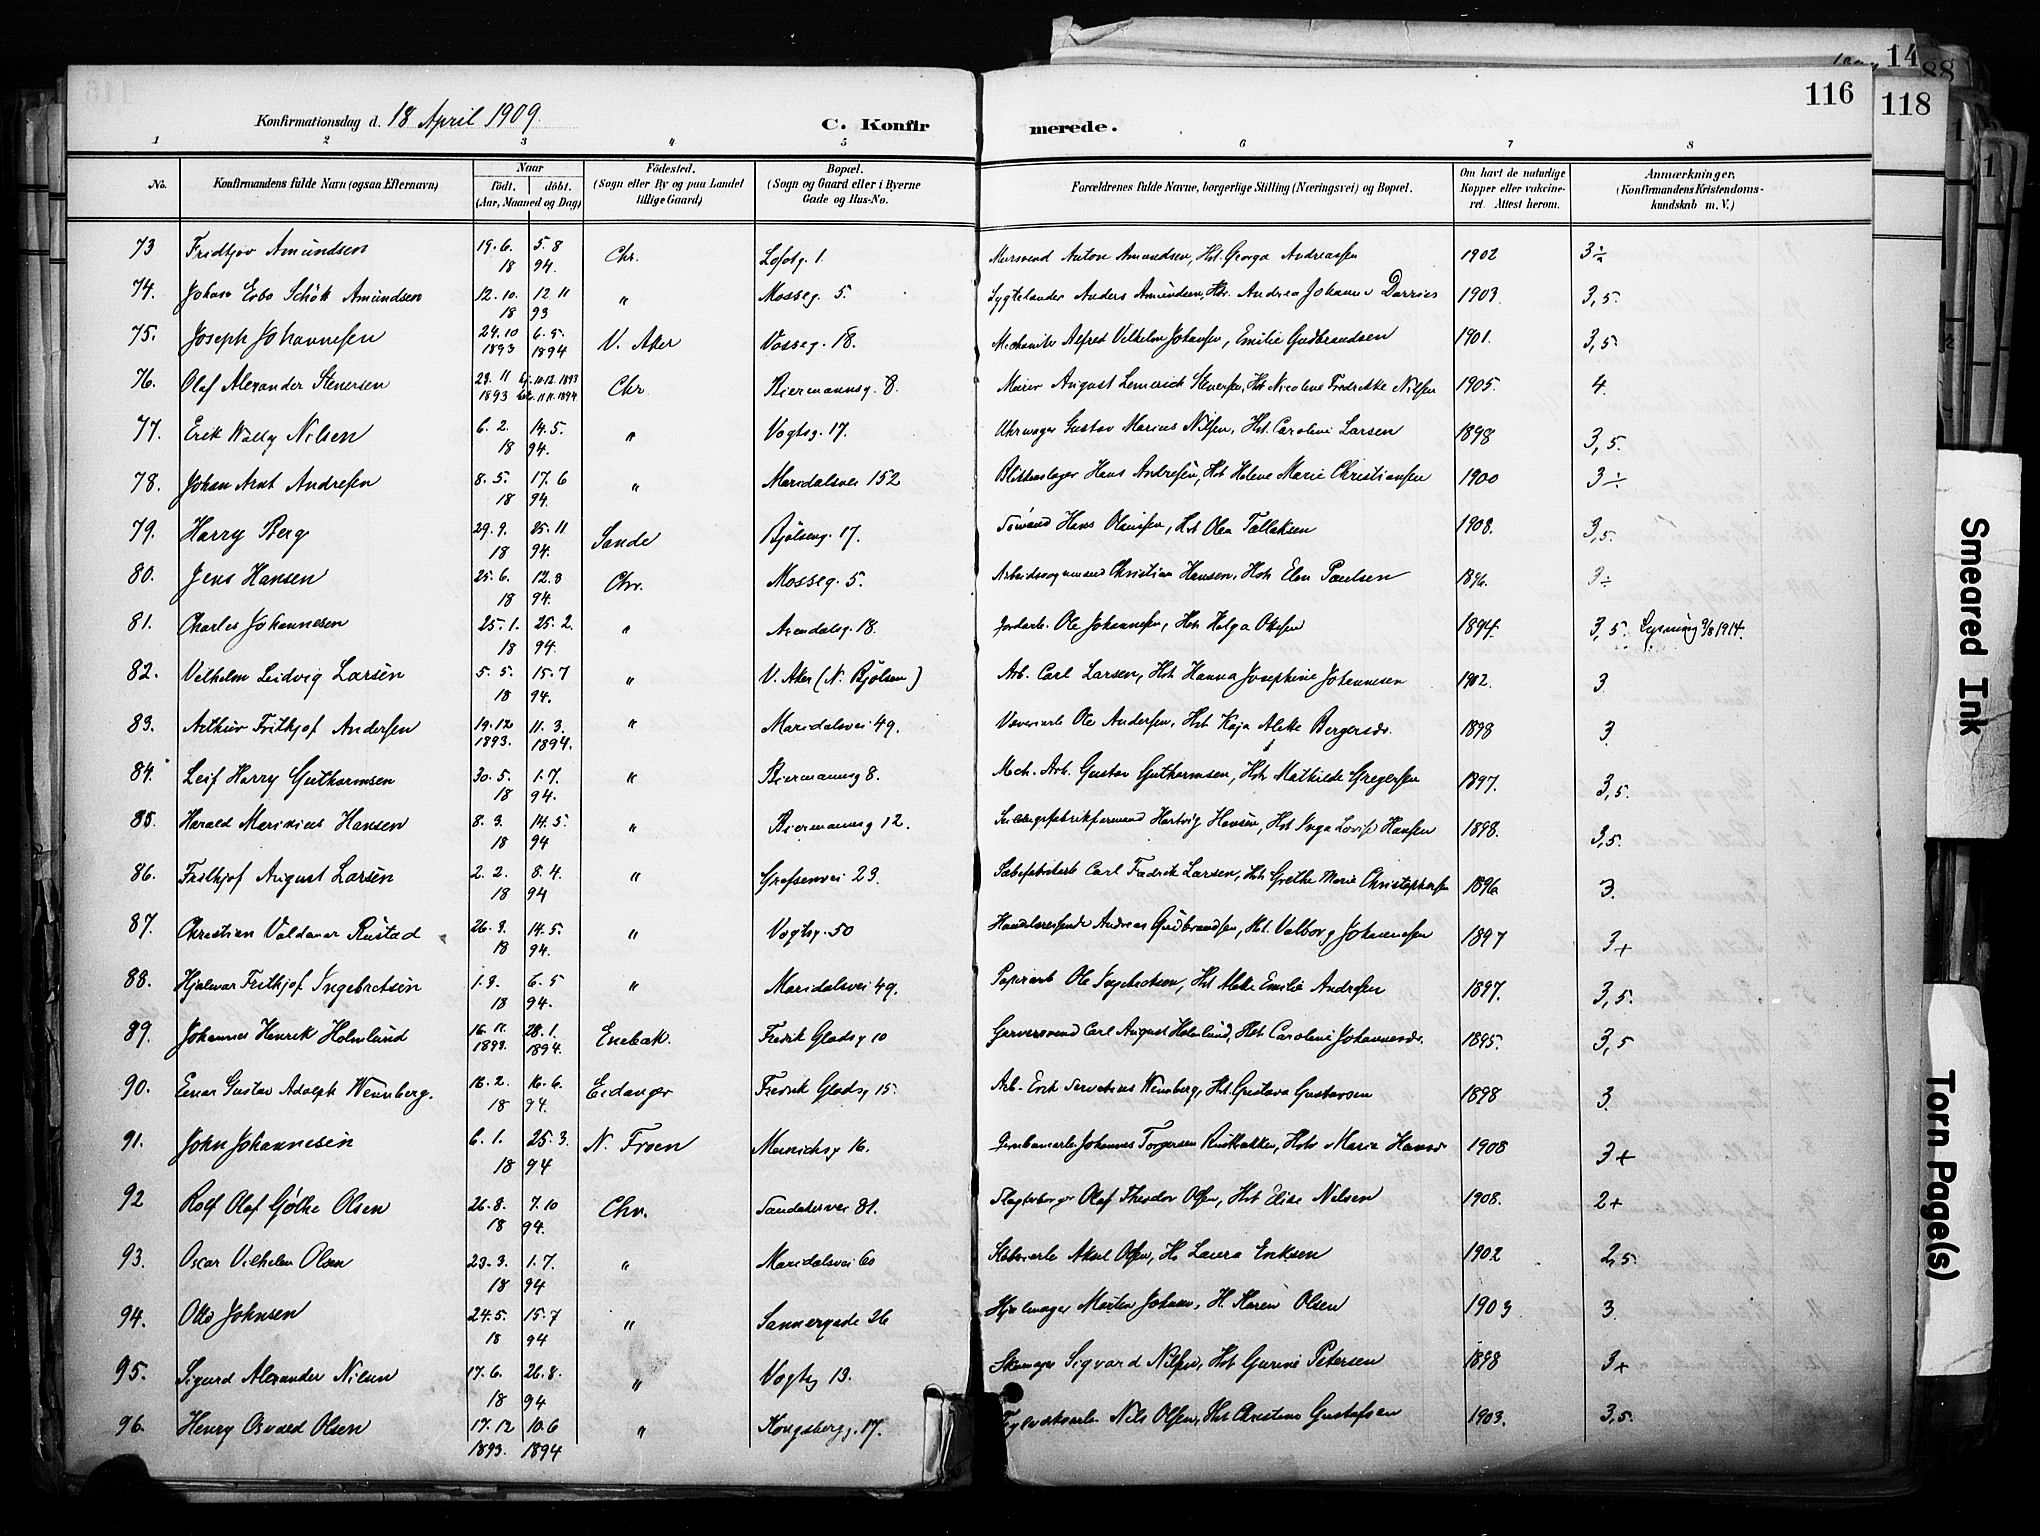 14
88
116
118
Konfirmationsdag d. 18 April 1909. C. Konfir merede.
1 2 3 4 5 6 7 8
No. Konfirmandens fulde Navn (ogsaa Efternavn) Naar födt. döbt. (Aar, Maaned og Dag) Födested. (Sogn eller By og paa Landet tillige Gaard) Bopæl. (Sogn og Gaard eller i Byerne Gade og Hus-No. Forældrenes fulde Navne, borgerlige Stilling (Næringsvei) og Bopæl. Om havt de naturlige Kopper eller vakcineret. Attest herom. Anmærkninger. (Konfirmandens Kristendomskundskab m. V.)
73 Fridtjov Amundsen 19. 6. 5. 8 18 94. Chr. Lofotg. 1. Mursvend Anton Amundsen, Hst. Georga Andreassen 1902 3÷
74. Johan Ebbo Schött Amundsen 12. 10. 12 11 18 93 " Mosseg. 5. Lygtetænder Anders Amundsen, Hst. Andrea 1903. 3,5.
75. Joseph Johannesen 24. 10 6. 5. 1893 1894 V. Aker Vosseg. 18. Alfred Vilhelm Johansen, Emilie Gudbrandsen 1901. 3,5.
76. Olaf Alexander Stenersen 23. 11 10. 12. 1893 1893 11. 11. 1894 Chr. Biermannsg. 8. Murer August Stenersen, Hst Nicoline Fredrikke Nilsen 1905. 4.
77. Erik Wally Nilsen 6. 2. 14. 5. 18 94. " Vogtsg. 17. Uhrmager Gustav Marius Nilsen, Hst. Caroline Larsen 1898 3,5.
78. Johan Arnt Andresen 8. 5. 17. 6 18 94. " Maridalsvei 152 Blikkenslager Hans Andresen, Hst Helene Marie Christiansen 1900 3÷
79. Harry Berg 29. 9. 25. 11 18 94. Sande Bjølseng. 17. Hans Olausen, Hst Olea Tollaksen 1908. 3,5.
80. Jens Hansen 25. 6. 12. 8 18 94. Chr. Mosseg. 5. Christian Hansen, Hst. Elen Paulsen 1896. 3÷
81. Charles Johannesen 25. 1. 25. 2. 18 94. " Arendalsg. 18. Jordarb. Ole Johannesen, Hst. Helga Olsen 1894. 3,5. Lysning 9/8 1914.
82. Vilhelm Ludvig Larsen 5. 5. 15. 7 18 94. " V. Aker (N. Bjølsen) Arb. Carl Larsen, Hst. Hanna Josephine Johannesen 1902. 3
83. Arthur Frithjof Andersen 19. 12 11. 3. 1893. 1894. " Maridalsvei 49. Væveriarb. Ole Andersen, Hst. Kaja Alette Bergersdr. 1898 3.
84. Leif Harry Guthormsen 30. 5. 1. 7. 18 94. " Biermannsg 8. Mek. Arb. Gustav Guthormsen, Hst. Mathilde Gregersen 1897. 3,5.
85. Harald Marinius Hansen 8. 3. 14. 5. 18 94 " Biermannsg 12. Hartvig Hansen, Hst Inga Lovise Hansen 1898. 3,5.
86. Frithjof August Larsen 2. 2. 8. 4. 18 94 " Grefsenvei 23. Carl Fredrik Larsen, Hst. Grethe Marie Christophersen 1896 3.
87. Christian Valdemar Rustad 26. 3. 14. 5. 18 94. " Vogtsg. 50 Handelsreisende Andreas Gudbrandsen, Hst. Valborg Johannesen 1897 3+
88. Hjalmar Frithjof Ingebretsen 1. 3. 6. 5 18 94. " Maridalsvei 49. Papirarb Ole Ingebretsen, Hst Alette Emilie Andresen 1897. 3,5.
89. Johannes Henrik Holmlund 16. 11. 28. 1. 1893. 1894. Enebak. Fredrik Gladsg 10 Garversvend Carl August Holmlund, Hst. Caroline Johannesdr. 1895. 3,5
90. Einar Gustav Adolph Wennberg. 16. 2. 16. 6. 18 94. Eidanger Fredrik Gladsg 15. Arb. Erik Servatius Wennberg, Hst. Gustava Gustavsen 1898 3.
91. John Johannesen 6. 1. 25. 3. 18 94 N. Froen Munichsg 16. Johannes Torgersen, Hst. Marie Hansdr 1908 3+
92 Rolf Olaf Gjølke Olsen 26. 8. 7. 10 18 94. Chr. Sandakervei 81. Olaf Theodor Olsen, Hst Elise Nilsen 1908. 2+
93. Oscar Vilhelm Olsen 23. 3. 1. 7. 18 94 " Maridalsvei 60 Aksel Olsen, H. Laura Eriksen 1902 2,5
94. Otto Johnsen 24. 5. 15. 7 18 94 " Sannergade 26 Hjulmager Martin Johnsen, H. Karen Olsen 1903 3.
95. Sigurd Alexander Nilsen 17. 6. 26. 8. 18 94 " Vogtsg 13. Skomager Sigvard Nilsen, Hst Gurine Petersen 1898 3+
96. Henry Osvald Olsen 17. 12 10. 6 1893. 1894 " Kongsbergg. 17. Nils Olsen, Hst Christine Gustafsen 1903. 3,5.
Smeared Ink
Torn Page(s)